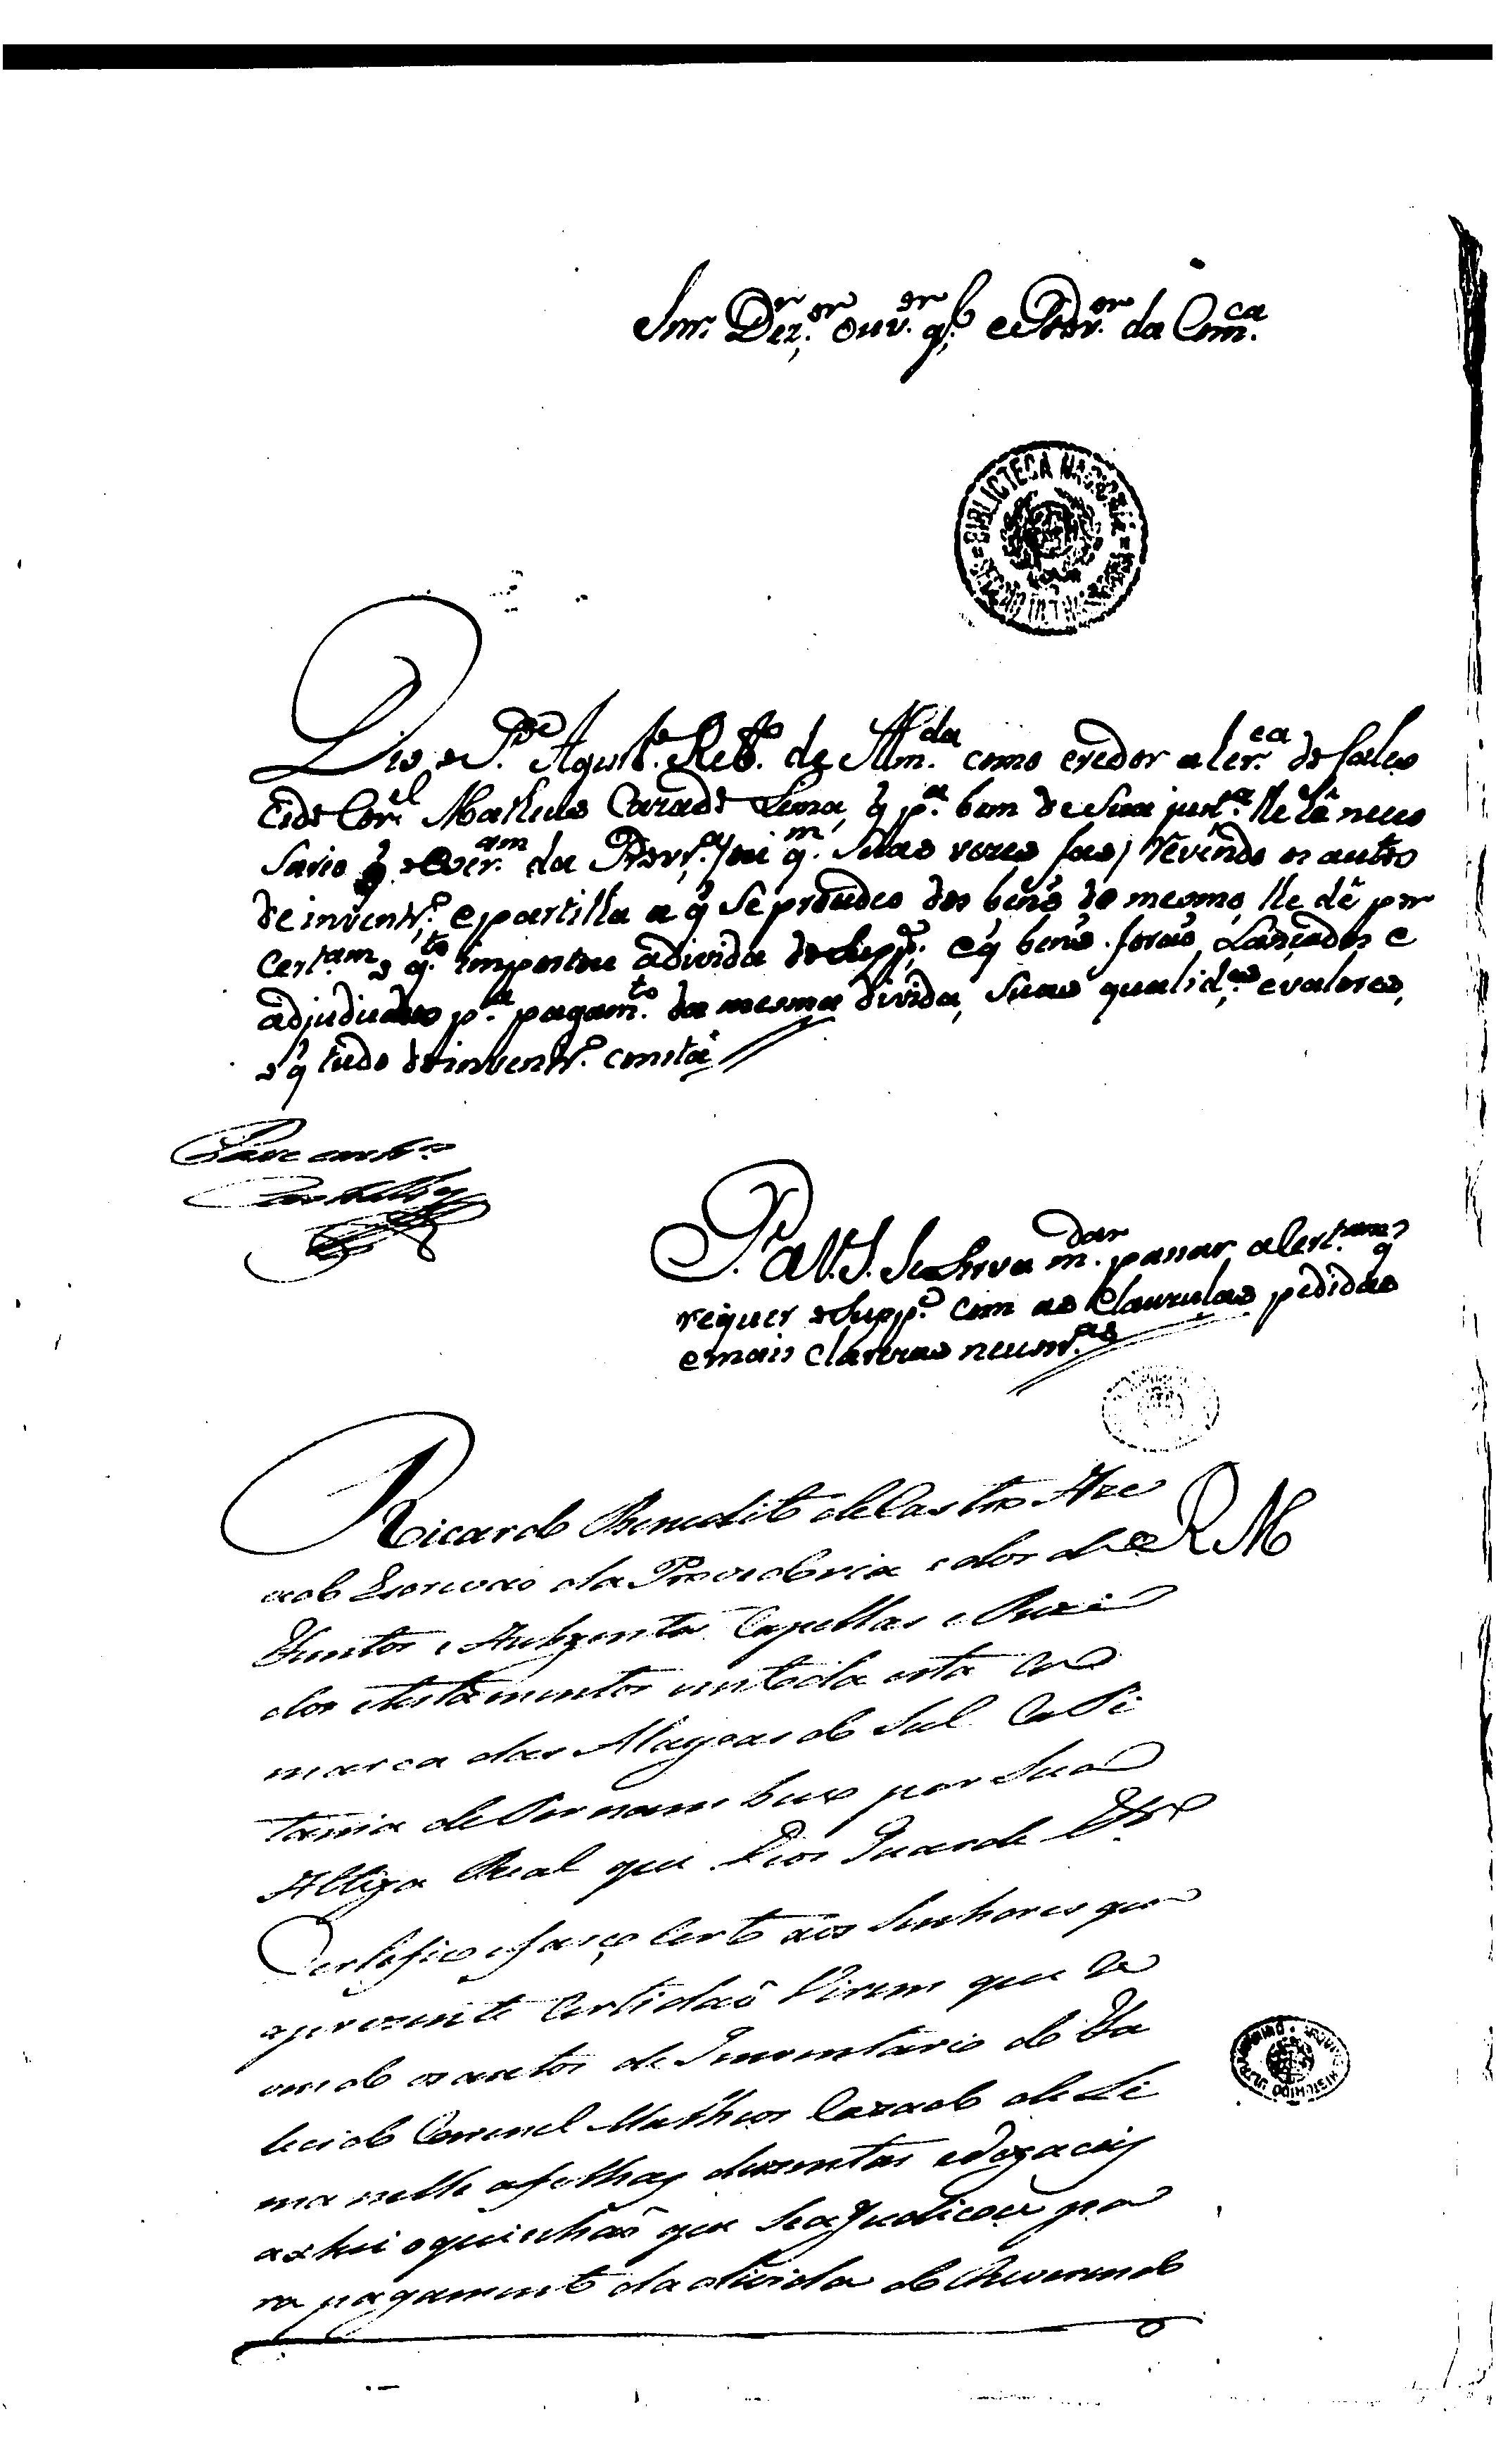 Snr. Dez.or Ouv.or g.l e Prov.or da Com.ca
BIBLIOTECA NACIONAL
Diz o P.e Agost.o Reb.o de Alm.da como credor a her.ca do fales
cido Cor.el Matheus Cazado Lima, q̃ p.a bem de sua just.a lhe hê neces
sario q̃ o Escr.am da Prov.a /ou q.m suas vezes faz/ revendo os autos
de invent.ro e partilha a q̃ se procedeo dos bens do mesmo, lhe dê por
Cert.am o q.to importou a divida do Supp.e, e q̃ bens forão Lançados e
adjudicados p.a pagam.to da mesma divida, suas qualid.es e valores,
o q̃ tudo do invent.ro consta
Passe
P. a V. S. Se sirva m.dar passar a Cert.am q̃
requer o Supp.e com as Clauzulas pedidas
e mais clarezas necessr.as
R M
Ricardo Benedito de Castro Aze
vedo Escrivaõ da Provedoria e dos de
funtos e Auzentes Capellas e Rezi
dos e Testamentos em toda esta Co
marca das Alagoas do Sul Capi
tania de Pernambuco por Sua
Alteza Real que Deos Guarde Etc.
Certefico e faço Certo aos Senhores que
a prezente Certidaõ Virem que re
vendo os autos de Inventario do Fa
lecido Coronel Matheos Cazado de Li
ma nelle a folhas duzentas e doze
achei o quinhaõ que se ajudicou pa
ra pagamento da divida do Reverendo
ARCHIVO HISTORICO ULTRAMARINO